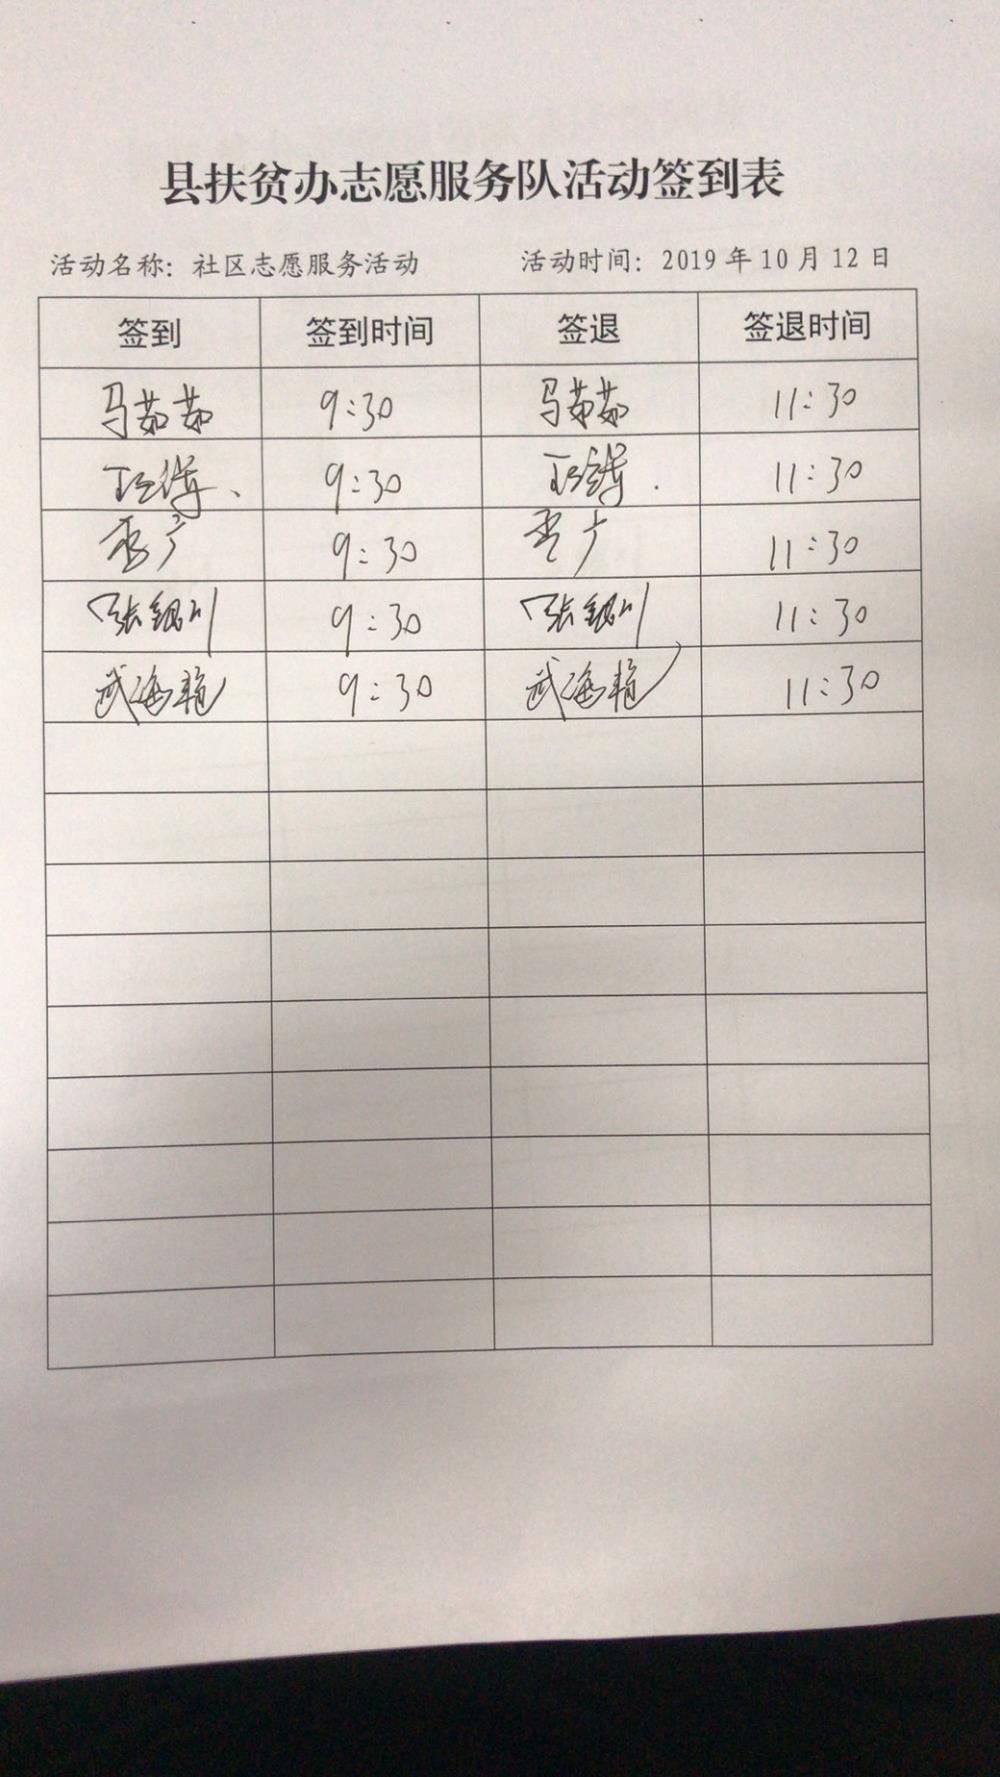 县扶贫办志愿服务队活动签到表
活动名称：社区志愿服务活动 活动时间：2019 年 10 月 12 日
签到 签到时间 签退 签退时间
马茹茹 9:30 马茹茹 11:30
9:30 11:30
9:30 11:30
张银川 9:30 张银川 11:30
武海艳 9:30 武海艳 11:30